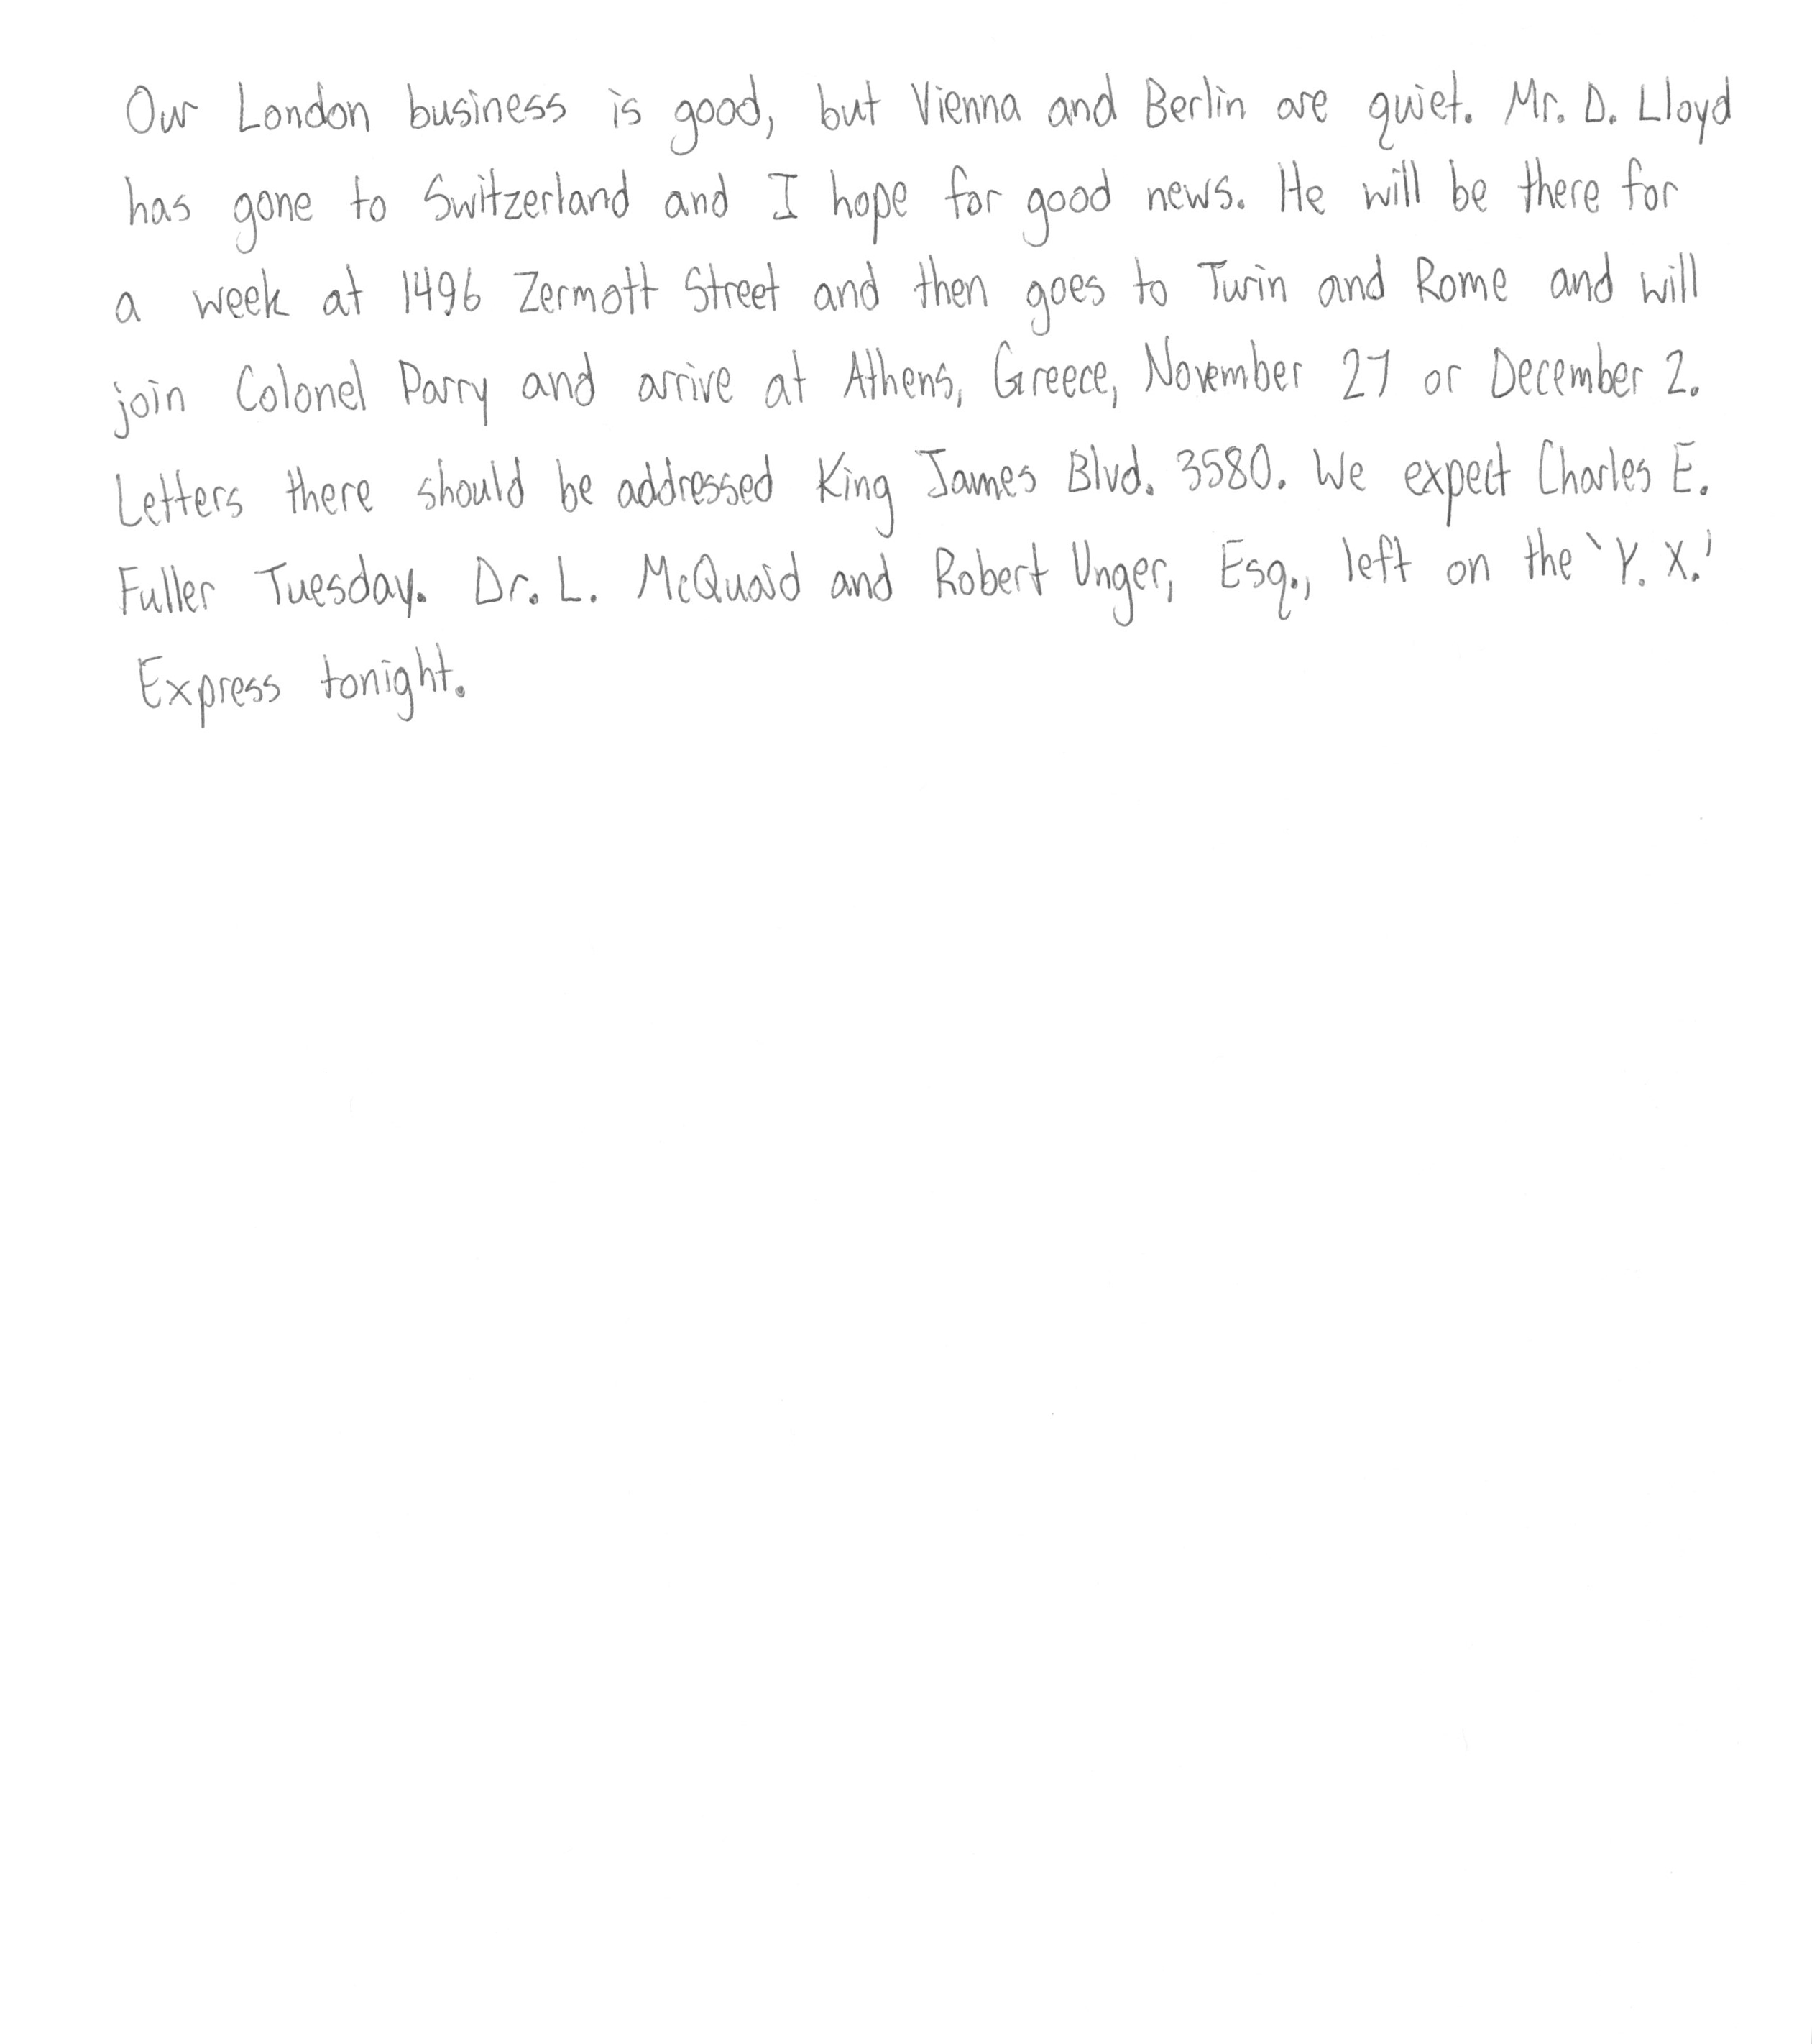 Our London business is good, but Vienna and Berlin are quiet. Mr. D. Lloyd
has gone to Switzerland and I hope for good news. He will be there for
a week at 1496 Zermott Street and then goes to Turin and Rome and will
join Colonel Parry and arrive at Athens, Greece, November 27 or December 2.
Letters there should be addressed King James Blvd. 3580. We expect Charles E.
Fuller Tuesday. Dr. L. McQuaid and Robert Unger, Esq., left on the 'Y. X.'
Express tonight.